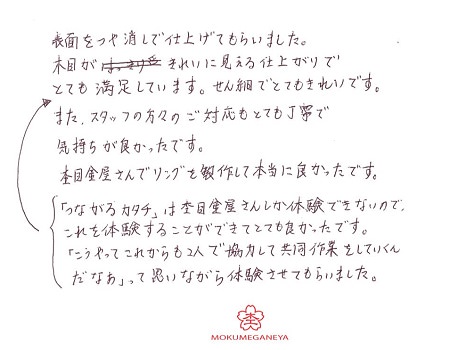 表面をつや消しで仕上げてもらいました。
木目がはっきりときれいに見える仕上がりで
とても満足しています。せん細でとてもきれいです。
また、スタッフの方々のご対応もとても丁寧で
気持ちが良かったです。
杢目金屋さんでリングを製作して本当に良かったです。
「つながるカタチ」は杢目金屋さんしか体験できないので、
これを体験することができてとても良かったです。
「こうやってこれからも2人で協力して共同作業をしていくん
だなあ」って思いながら体験させてもらいました。
杢
MOKUMEGANEYA